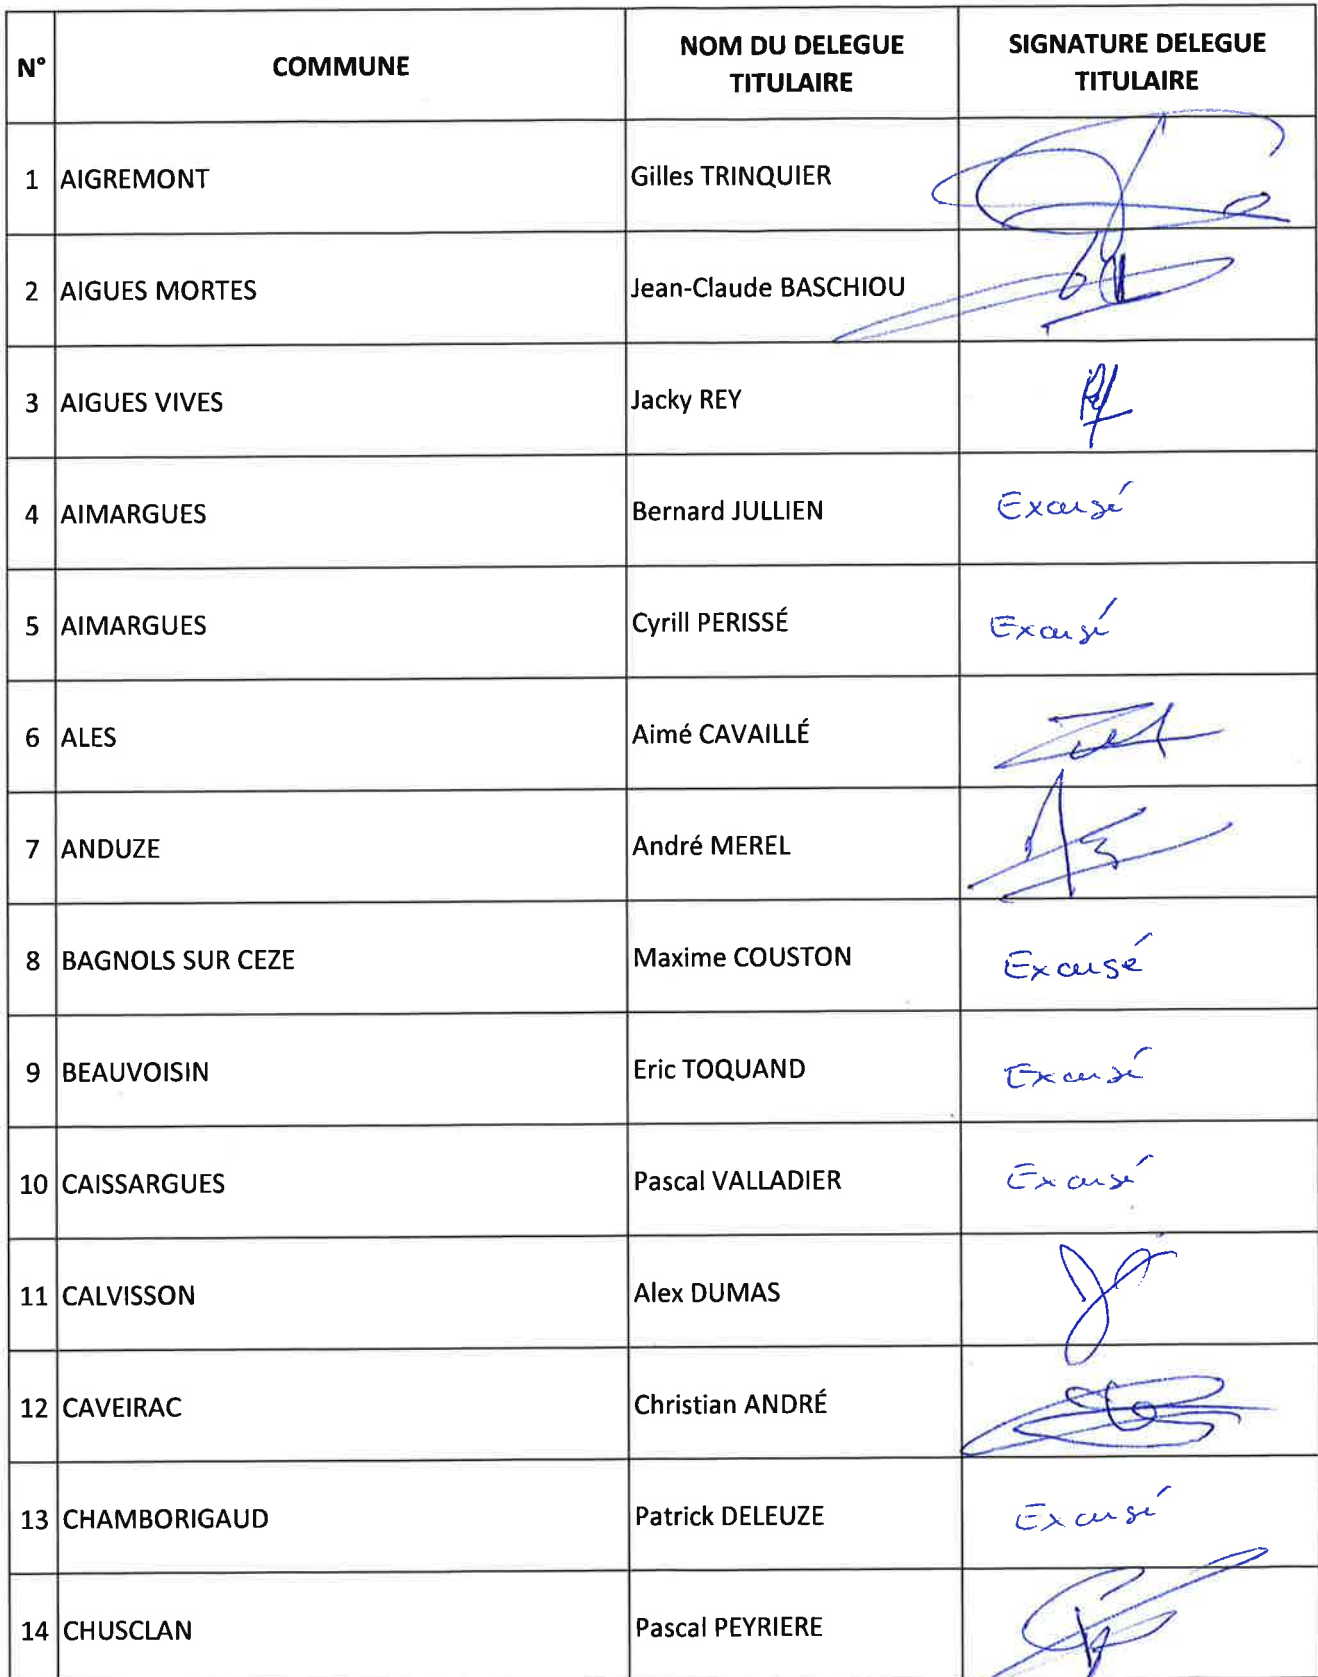 N° COMMUNE NOM DU DELEGUE TITULAIRE SIGNATURE DELEGUE TITULAIRE
1 AIGREMONT Gilles TRINQUIER
2 AIGUES MORTES Jean-Claude BASCHIOU
3 AIGUES VIVES Jacky REY
4 AIMARGUES Bernard JULLIEN Excusé
5 AIMARGUES Cyrill PERISSÉ Excusé
6 ALES Aimé CAVAILLÉ
7 ANDUZE André MEREL
8 BAGNOLS SUR CEZE Maxime COUSTON Excusé
9 BEAUVOISIN Eric TOQUAND Excusé
10 CAISSARGUES Pascal VALLADIER Excusé
11 CALVISSON Alex DUMAS
12 CAVEIRAC Christian ANDRÉ
13 CHAMBORIGAUD Patrick DELEUZE Excusé
14 CHUSCLAN Pascal PEYRIERE